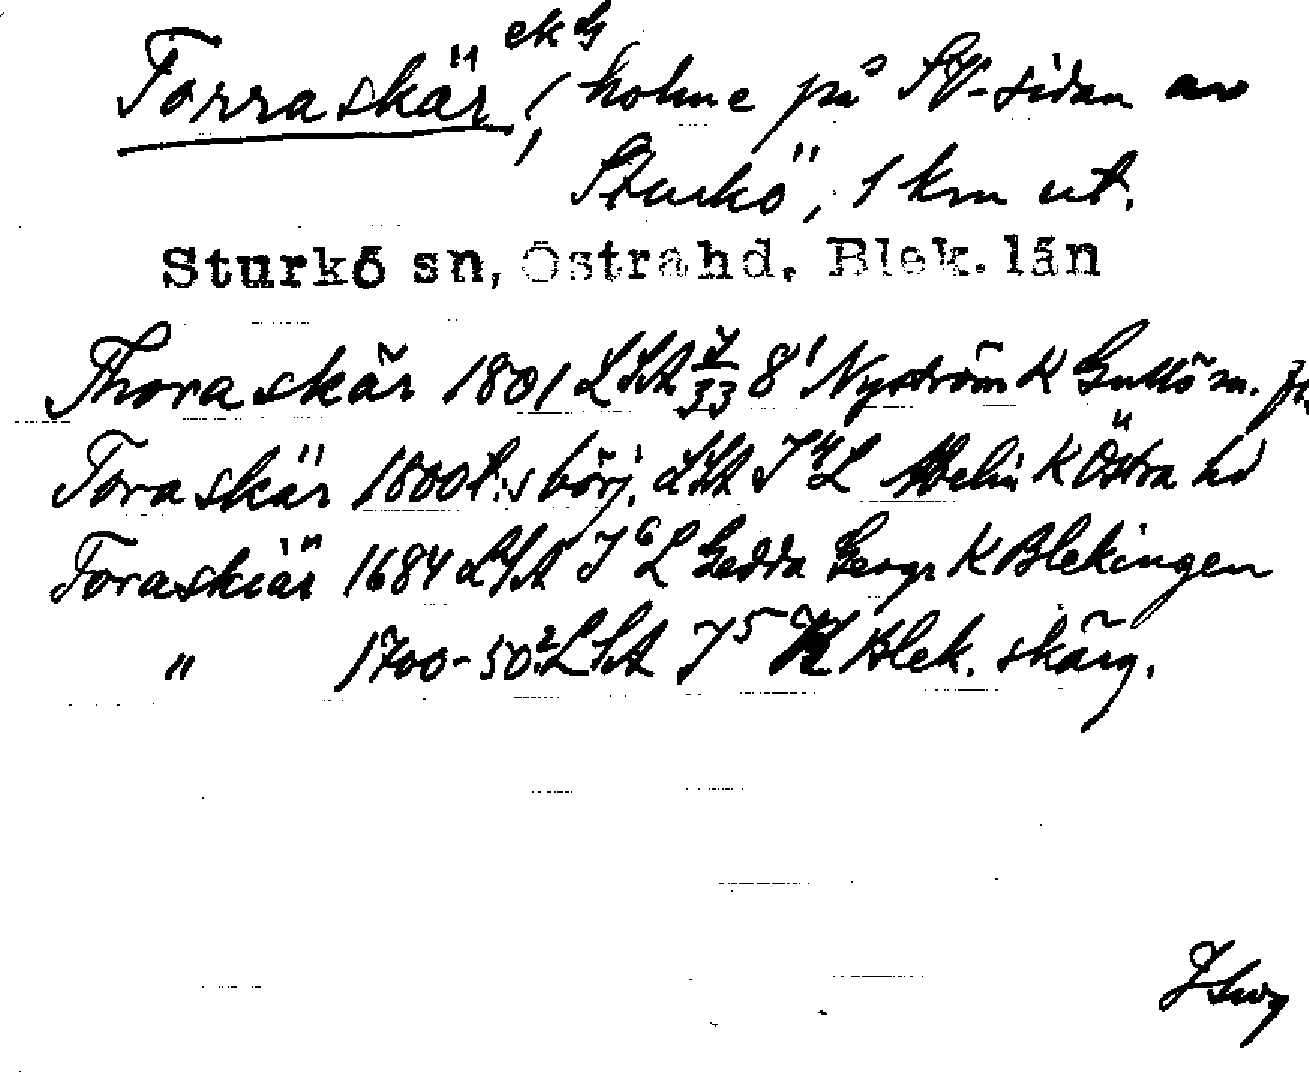 Torraskär, ek G holme på SV-sidan av
Sturkö, 1 km ut.
Sturkö sn, Östra hd, Blek. län
Thoraskär 1801 LSA J/33 8¹ Nyström K Guttö m. fl.
Toraskär 1800t:s börj. LSA J⁴L Melin K Östra hd
Toraskiär 1684 LSA J⁶L Gedda Geogr K Blekingen
" 1700-50? LSA J⁵ K Blek. skärg.